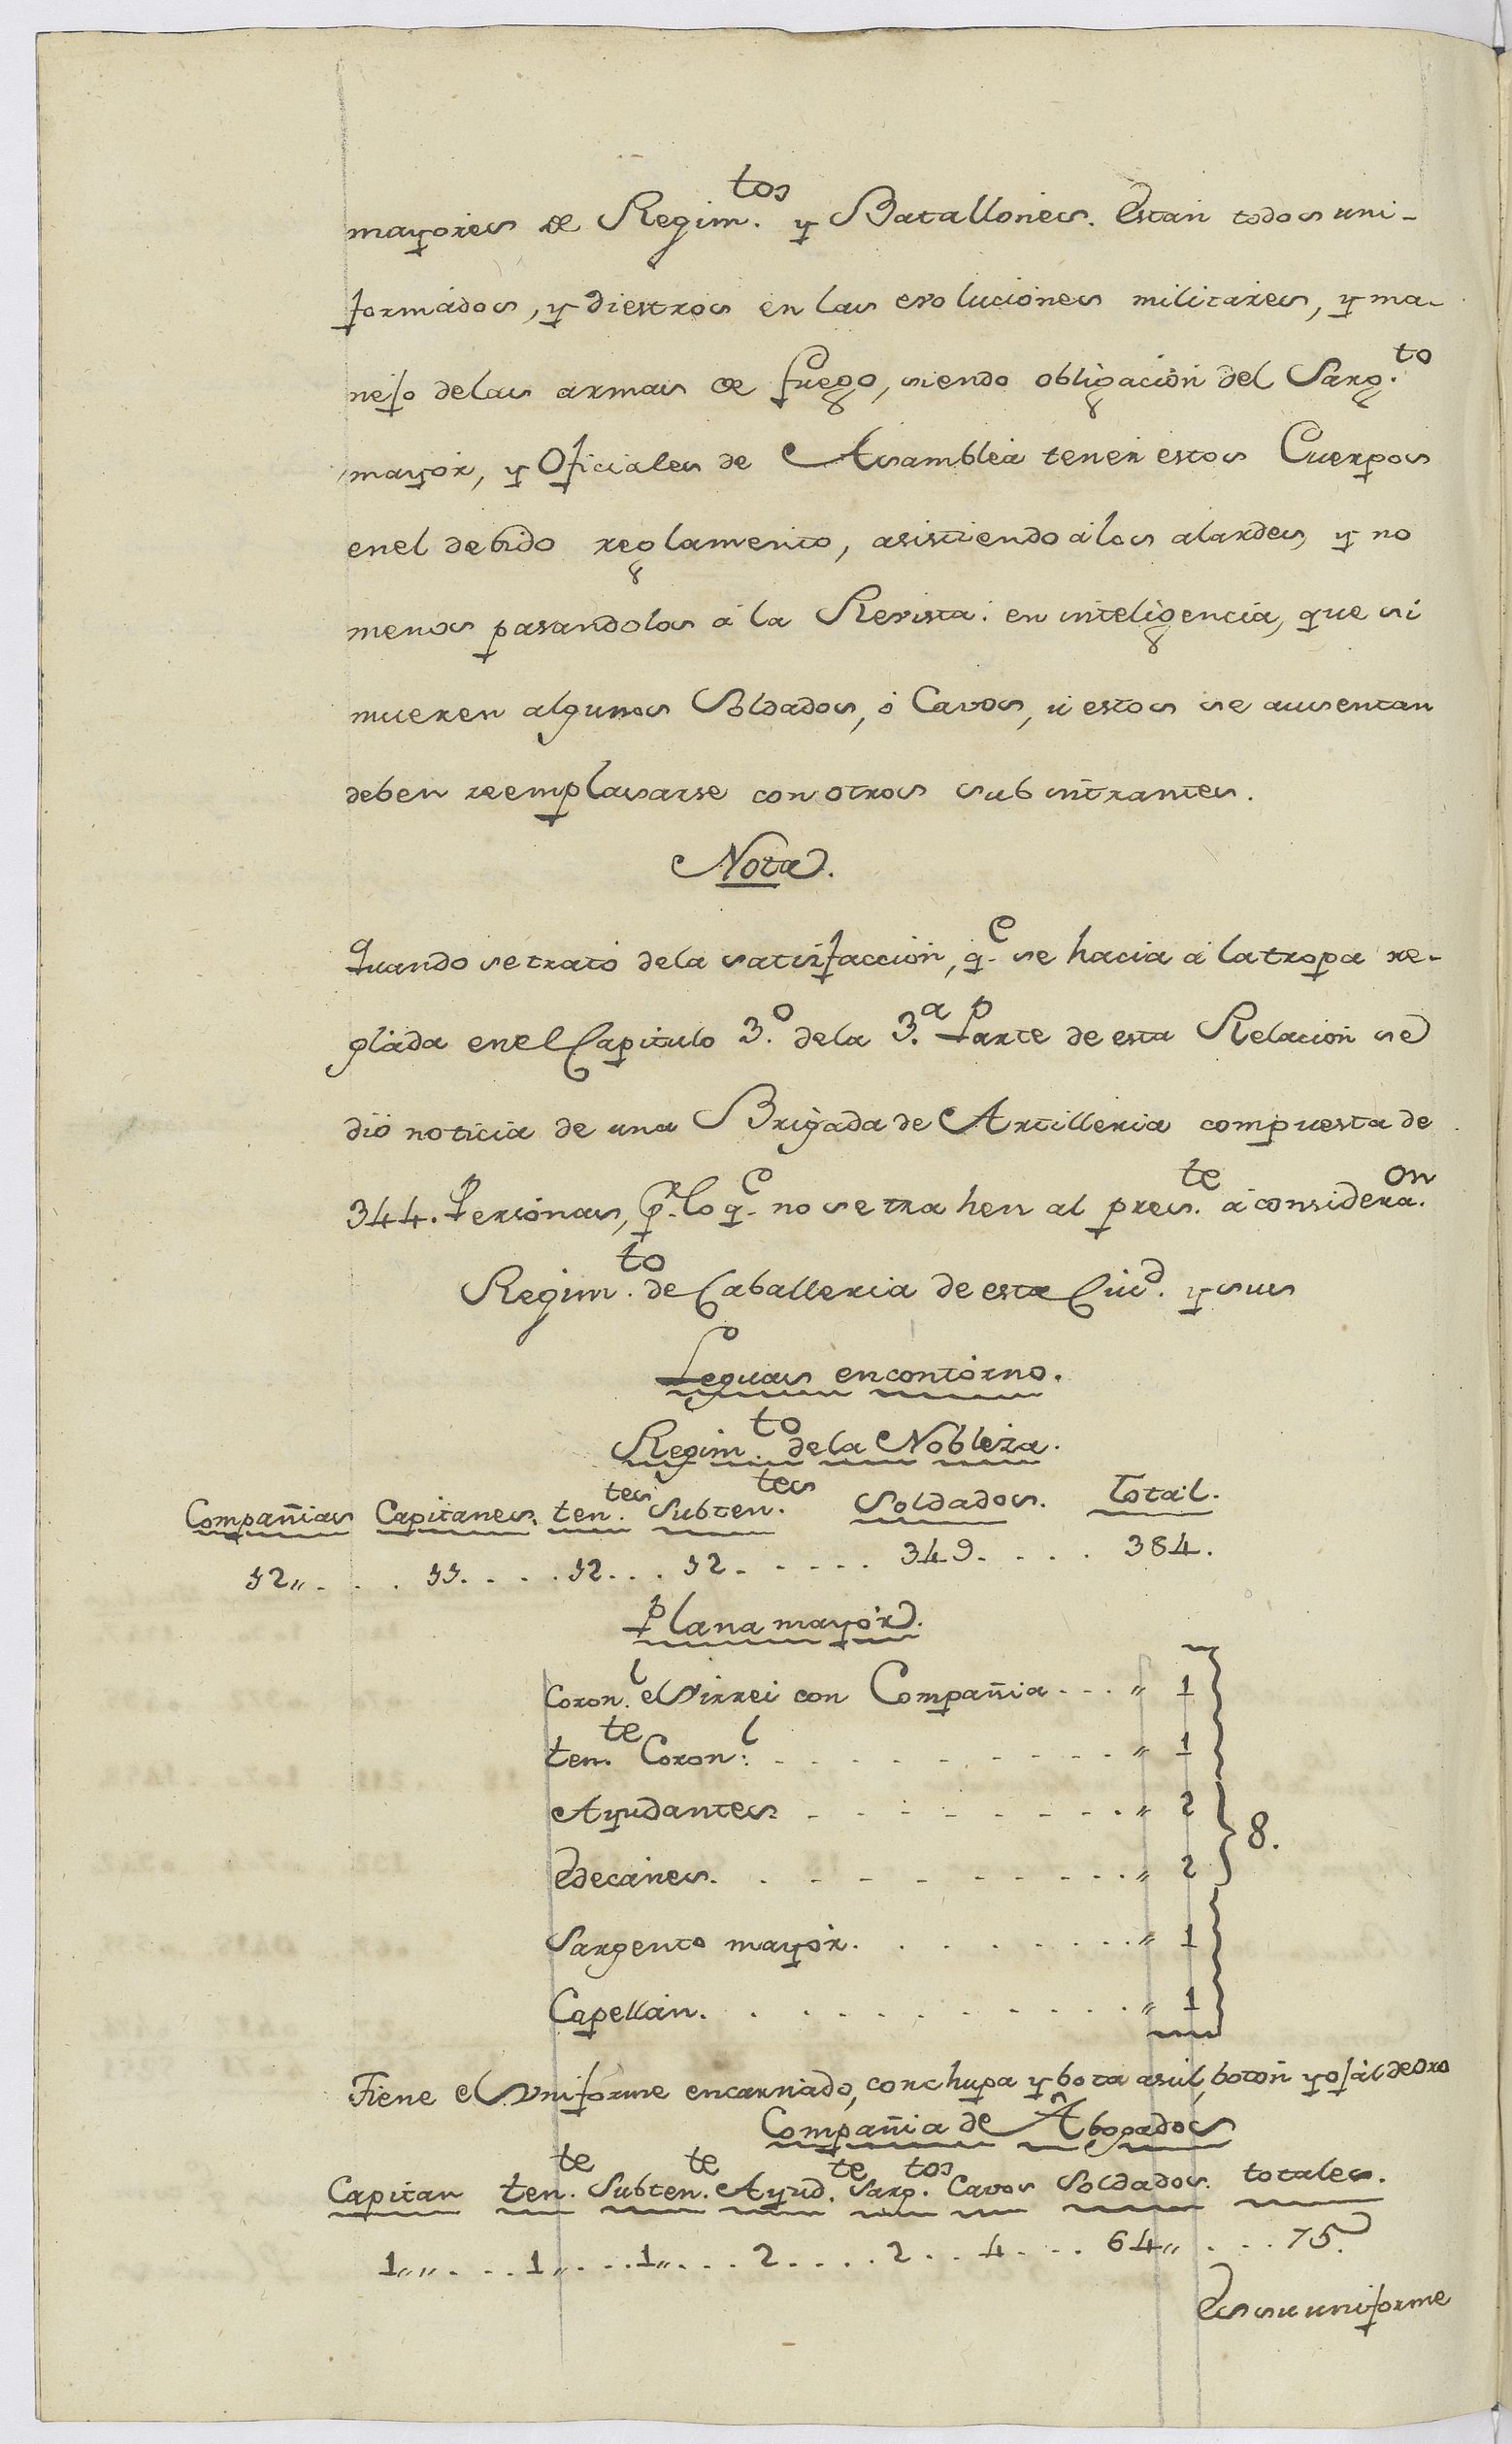 mayores de Regim.tos y Batallones. Están todos uni-
formados, y diestros en las evoluciones militares, y ma-
nejo delas armas de fuego, siendo obligación del Sarg.to
mayor, y Oficiales de Asamblea tener estos Cuerpos
enel debido reglamento, asistiendo álos alardes, y no
menos pasandolos á la Revista: en inteligencia, que si
mueren algunos Soldados, ó Cavos, ú estos se ausentan
deben reemplasarse con otros subintrantes.
Nota.
Quando se trató dela satisfacción, q.e se hacia á la tropa re-
glada enel Capitulo 3.o dela 3.a Parte de esta Relacion se
dió noticia de una Brigada de Artilleria compuesta de
344. Personas, p.r lo q.e no se trahen al pres.te á considera.on
Regim.to de Caballeria de esta Ciud. y sus
Leguas encontorno.
Regim.to dela Nobleza.
Compañias Capitanes. ten.tes Subten.tes Soldados. Total.
12,, . . . 11. . . . 12. . . 12. . . . . . 349. . . . 384.
Plana mayor.
Coron.l el Virrei con Compañia . . . ,, 1
ten.te Coron.l . . . . . . . . . . ,, 1
Ayudantes . . . . . . . . . ,, 2
Edecanes. . . . . . . . . . ,, 2 8.
Sargento mayor. . . . . . . . . ,, 1
Capellan. . . . . . . . . . . ,, 1
Tiene el Uniforme encarnado, con chupa y bota asul, botón y ojál de Oro
Compañia de Abogados
Capitan ten.te Subten.te Ayud.te Sarg.tos Cavos Soldados. totales.
1,,,, . . . 1,, . . . 1,, . . . 2. . . . 2. . 4. . . 64,, . . . 75.
Es su uniforme